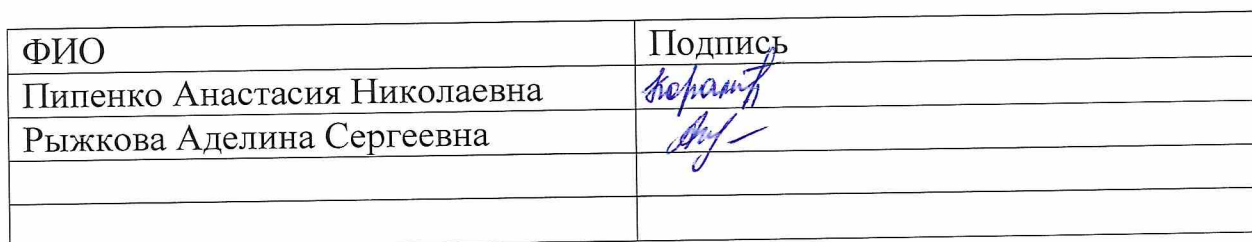 ФИО Подпись
Пипенко Анастасия Николаевна
Рыжкова Аделина Сергеевна